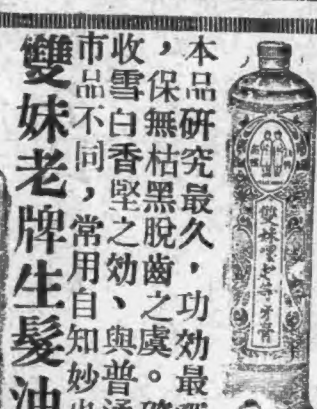 本品研究最久，功効最
，保無枯黑脫齒之虞。
收雪白香堅之効、與普通
市品不同，常用自知妙也
雙妹老牌生髮油
雙妹
牙膏